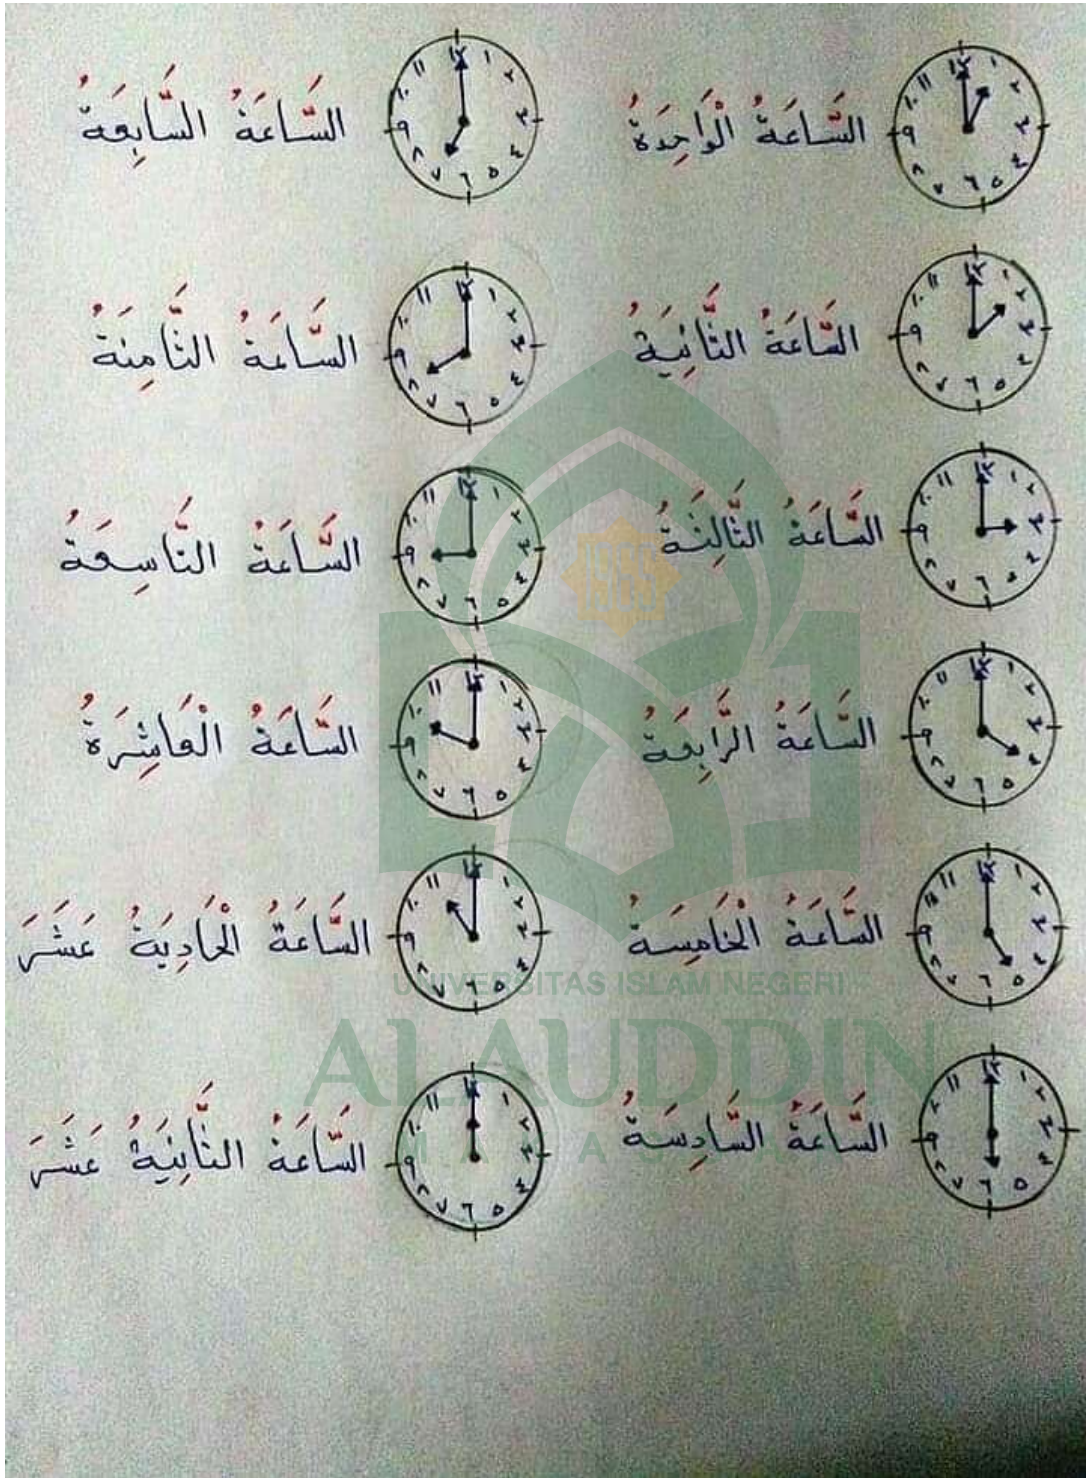 السَّاعَةُ الْوَاحِدَةُ
السَّاعَةُ الثَّانِيَةُ
السَّاعَةُ الثَّالِثَةُ
السَّاعَةُ الرَّابِعَةُ
السَّاعَةُ الْخَامِسَةُ
السَّاعَةُ السَّادِسَةُ
السَّاعَةُ السَّابِعَةُ
السَّاعَةُ الثَّامِنَةُ
السَّاعَةُ التَّاسِعَةُ
السَّاعَةُ الْعَاشِرَةُ
السَّاعَةُ الْحَادِيَةُ عَشَرَ
السَّاعَةُ الثَّانِيَةُ عَشَرَ
UNIVERSITAS ISLAM NEGERI
ALAUDDIN